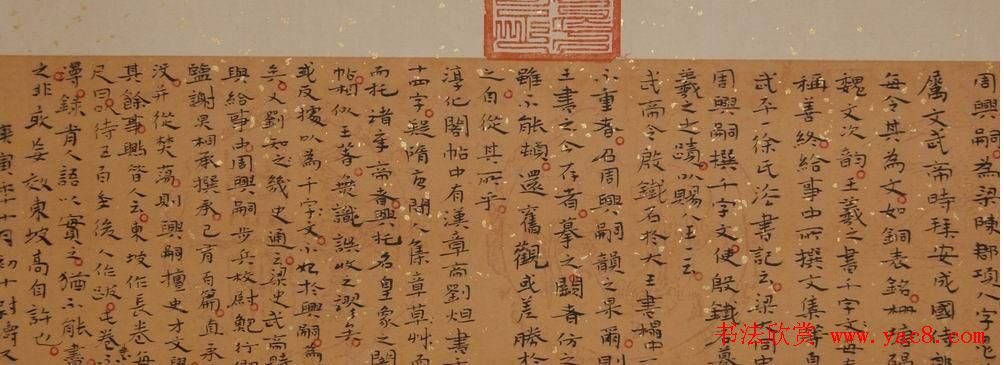 周興嗣為梁陳郡項人字思
屬文武帝時拜安成國侍郎
每令其為文如銅表銘柵塘碣
魏文次韵王羲之書千字文每
稱善終給事中所撰文集等百
武平徐氏法書記云梁周中
周興嗣撰千字文使殷鐵石摹
羲之之蹟以賜八王云
武帝令殷鐵石於大王書榻中一
小重者召周興嗣韻之果爾則
王書之今存者摹之闕者仿之
雖不能頓還舊觀或差勝於
之自從其所乎
淳化閣帖中有漢章帝劉炟書
十四字疑隋唐間人集章草
而托諸章帝者與托名皇象之閣
帖相似王著無識誤收之謬矣
或反據以為千字文不始於興嗣
矣又劉知幾史通云梁史武帝時
與給事中周興嗣步兵校尉鮑行卿
謝昊相承撰承已有百篇直承
沒并從焚蕩則興嗣擅史才文
其餘事興皆人云東坡作長卷每
尺曰待五百年後人作跋此卷
尋錄昔人語以實之猶不能書
之非敢妄效東坡高自許也
庚寅年十月初十
书法欣赏 www.yac8.com